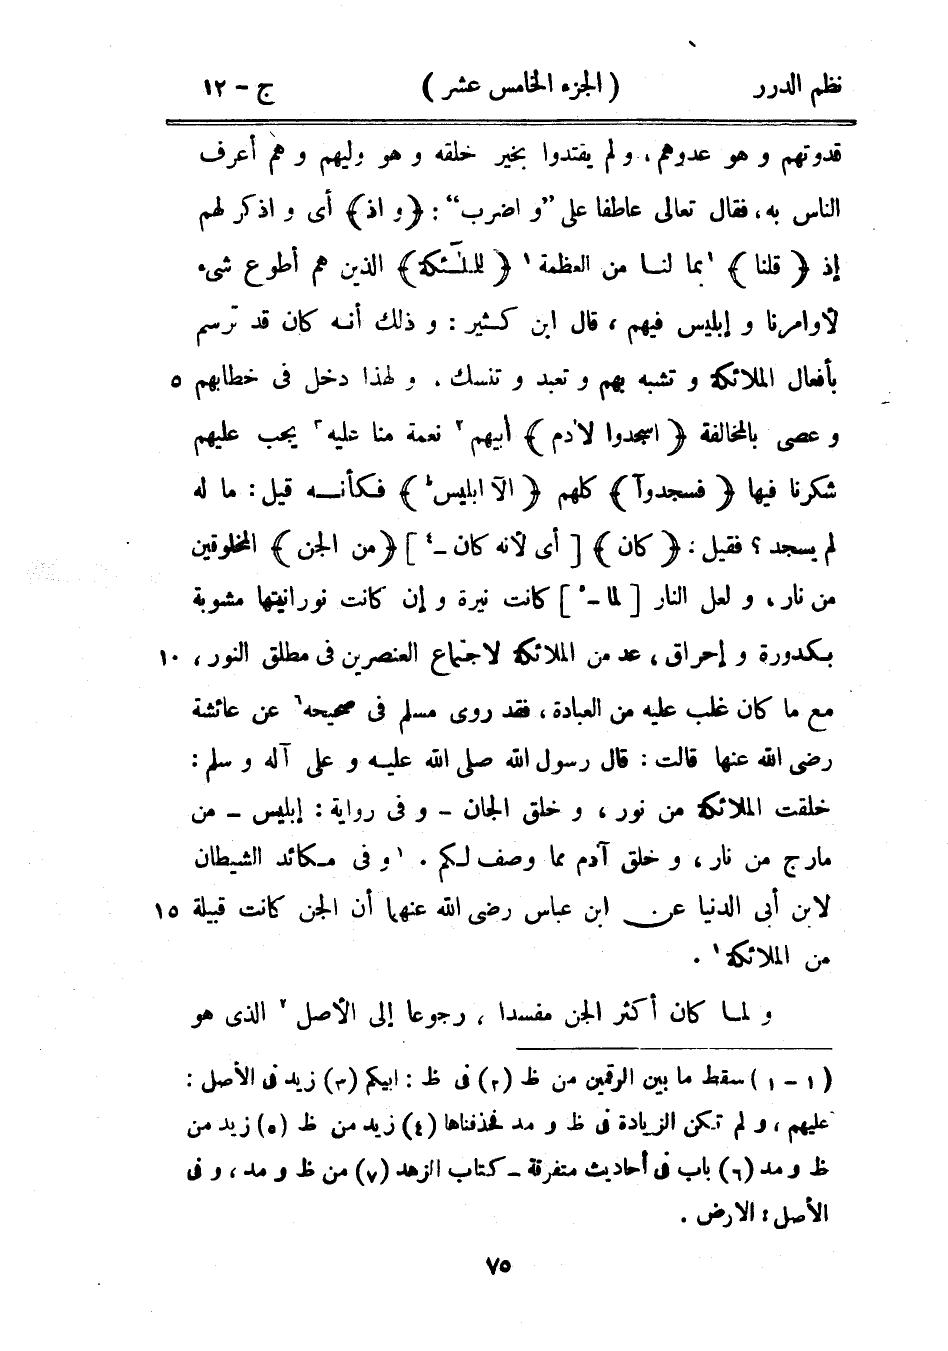 نظم الدرر ( الجزء الخامس عشر ) ج - ١٢
قدوتهم و هو عدوهم، و لم يقتدوا بخير خلقه و هو وليهم و هم أعرف
الناس به، فقال تعالى عاطفا على ”و اضرب“ : ﴿و اذ﴾ أى و اذكر لهم
إذ ﴿ قلنا ﴾ ١بما لنا من العظمة١ ﴿ للملٰٓئكة﴾ الذين هم أطوع شىء
لأوامرنا و إبليس فيهم ، قال ابن كثير : و ذلك أنه كان قد ترسم
بأفعال الملائكة و تشبه بهم و تعبد و تنسك . و لهذا دخل فى خطابهم ٥
و عصى بالمخالفة ﴿ اسجدوا لاٰدم ﴾ أبيهم٢ نعمة منا عليه٣ يجب عليهم
شكرنا فيها ﴿ فسجدوآ﴾ كلهم ﴿ الآ ابليس ط﴾ فكأنه قيل : ما له
لم يسجد ؟ فقيل : ﴿ كان ﴾ [ أى لأنه كان -٤ ] ﴿من الجن ﴾ المخلوقين
من نار ، و لعل النار [ لما -٥ ] كانت نيرة و إن كانت نورانيتها مشوبة
بكدورة و إحراق ، عد من الملائكة لاجتماع العنصرين فى مطلق النور ، ١٠
مع ما كان غلب عليه من العبادة ، فقد روى مسلم فى صحيحه٦ عن عائشة
رضى الله عنها قالت : قال رسول الله صلى الله عليه و على آله و سلم :
خلقت الملائكة من نور ، و خلق الجان - و فى رواية : إبليس - من
مارج من نار ، و خلق آدم مما وصف لكم . ١و فى مكائد الشيطان
لابن أبى الدنيا عن ابن عباس رضى الله عنهما أن الجن كانت قبيلة ١٥
من الملائكة١ .
و لما كان أكثر الجن مفسدا ، رجوعا إلى الأصل٢ الذى هو
(١ - ١) سقط ما بين الرقمين من ظ (٢) فى ظ : ابيكم (٣) زيد فى الأصل :
عليهم ، و لم تكن الزيادة فى ظ و مد فحذفناها (٤) زيد من ظ (٥) زيد من
ظ و مد (٦) باب فى أحاديث متفرقة - كتاب الزهد (٧) من ظ و مد ، و فى
الأصل : الارض .
٧٥